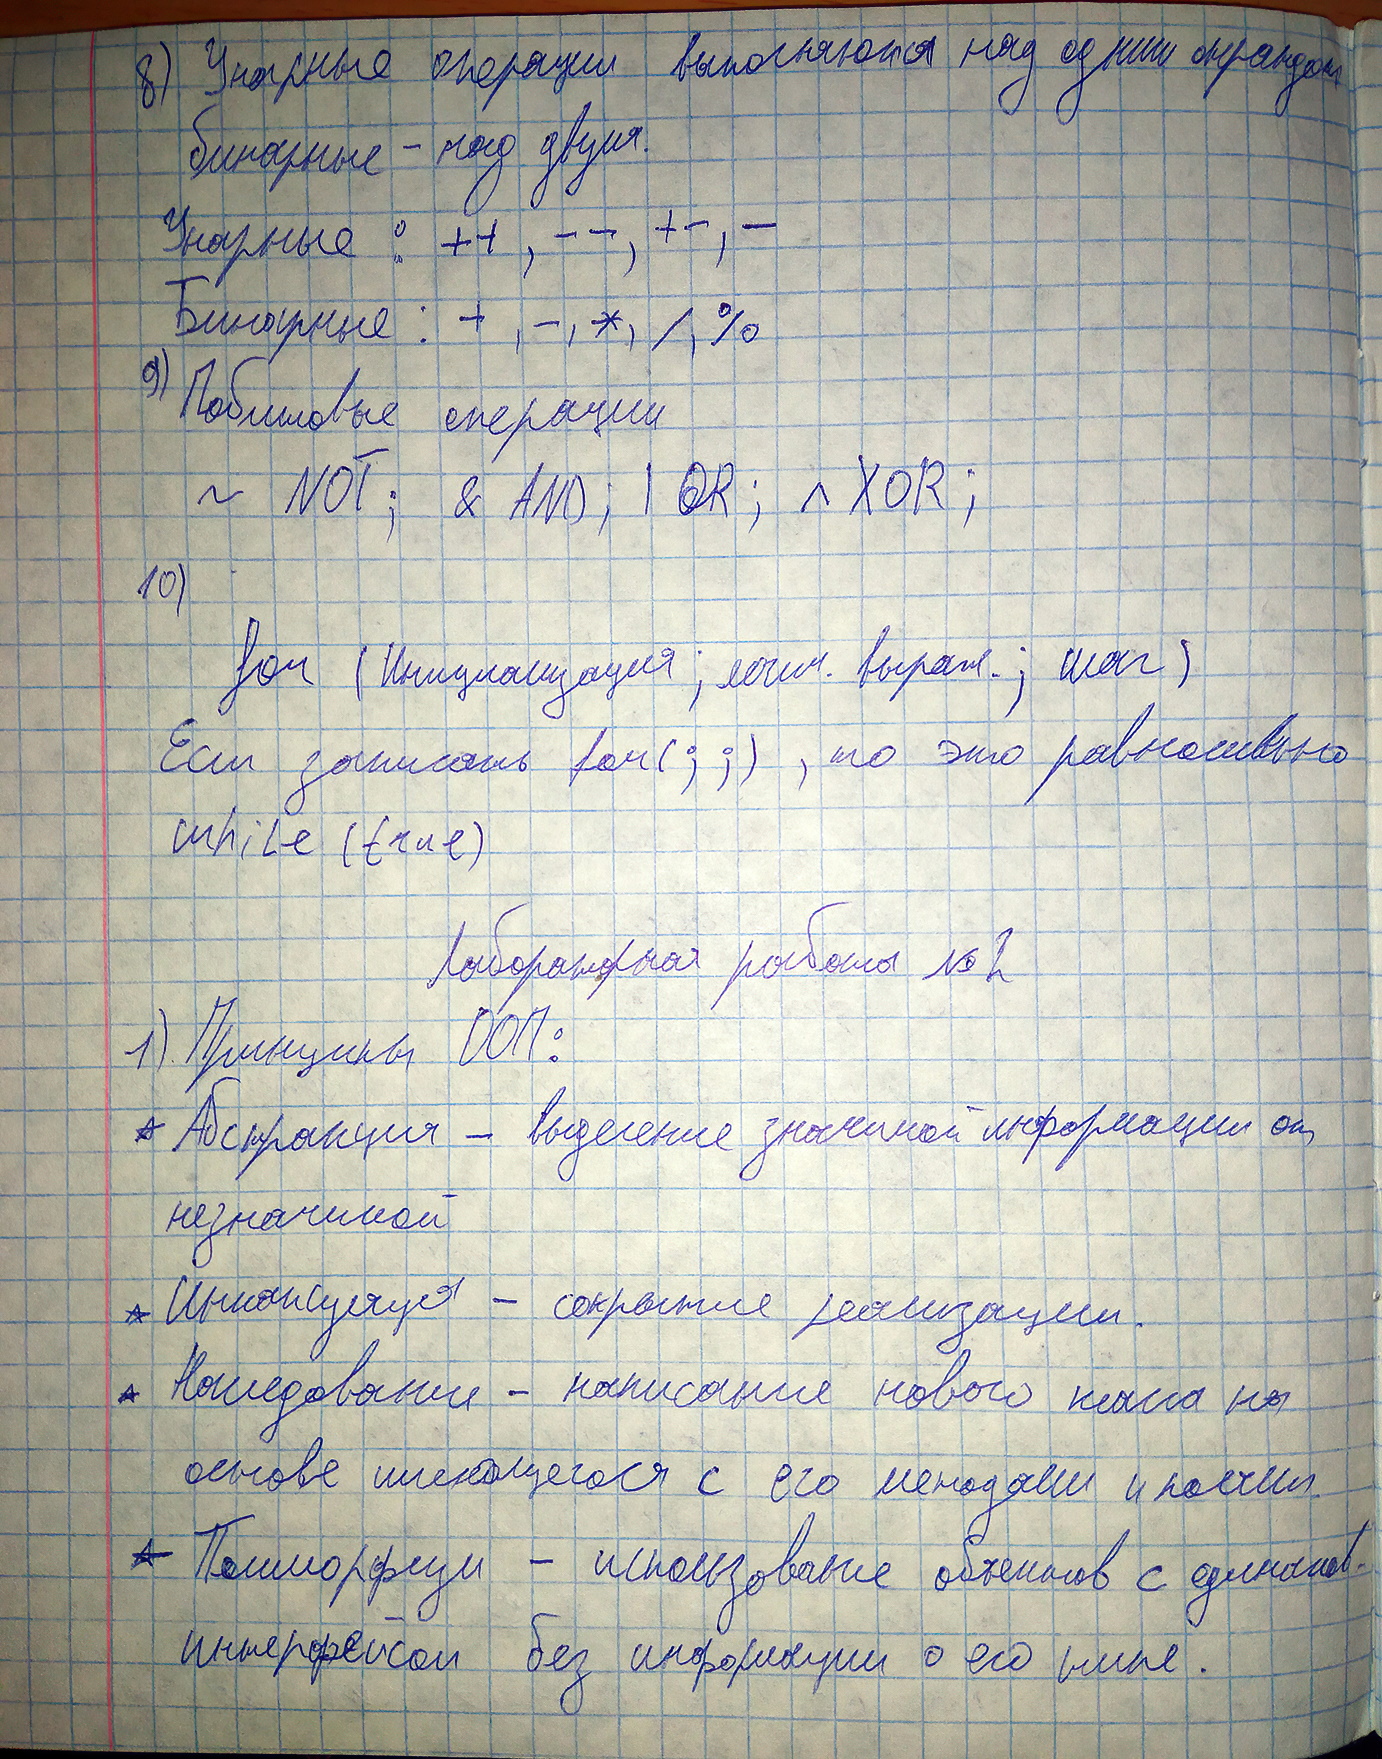 8) Унарные операции выполняются над одним операндом
бинарные – над двумя.
Унарные : ++ , -- , +- , –
Бинарные : + , – , * , / , %
9) Побитовые операции
~ NOT ; & AND ; | OR ; ^ XOR ;
10)
for (Инициализация ; логич. выраж. ; шаг)
Если записать for( ; ; ) , то это равносильно
while (true)
Лабораторная работа №2
1). Принципы ООП:
* Абстракция – выделение значимой информации от
незначимой
* Инкапсуляция – сокрытие реализации.
* Наследование – написание нового класса на
основе имеющегося с его методами и полями.
* Полиморфизм – использование объектов с одинаков.
интерфейсом без информации о его типе.